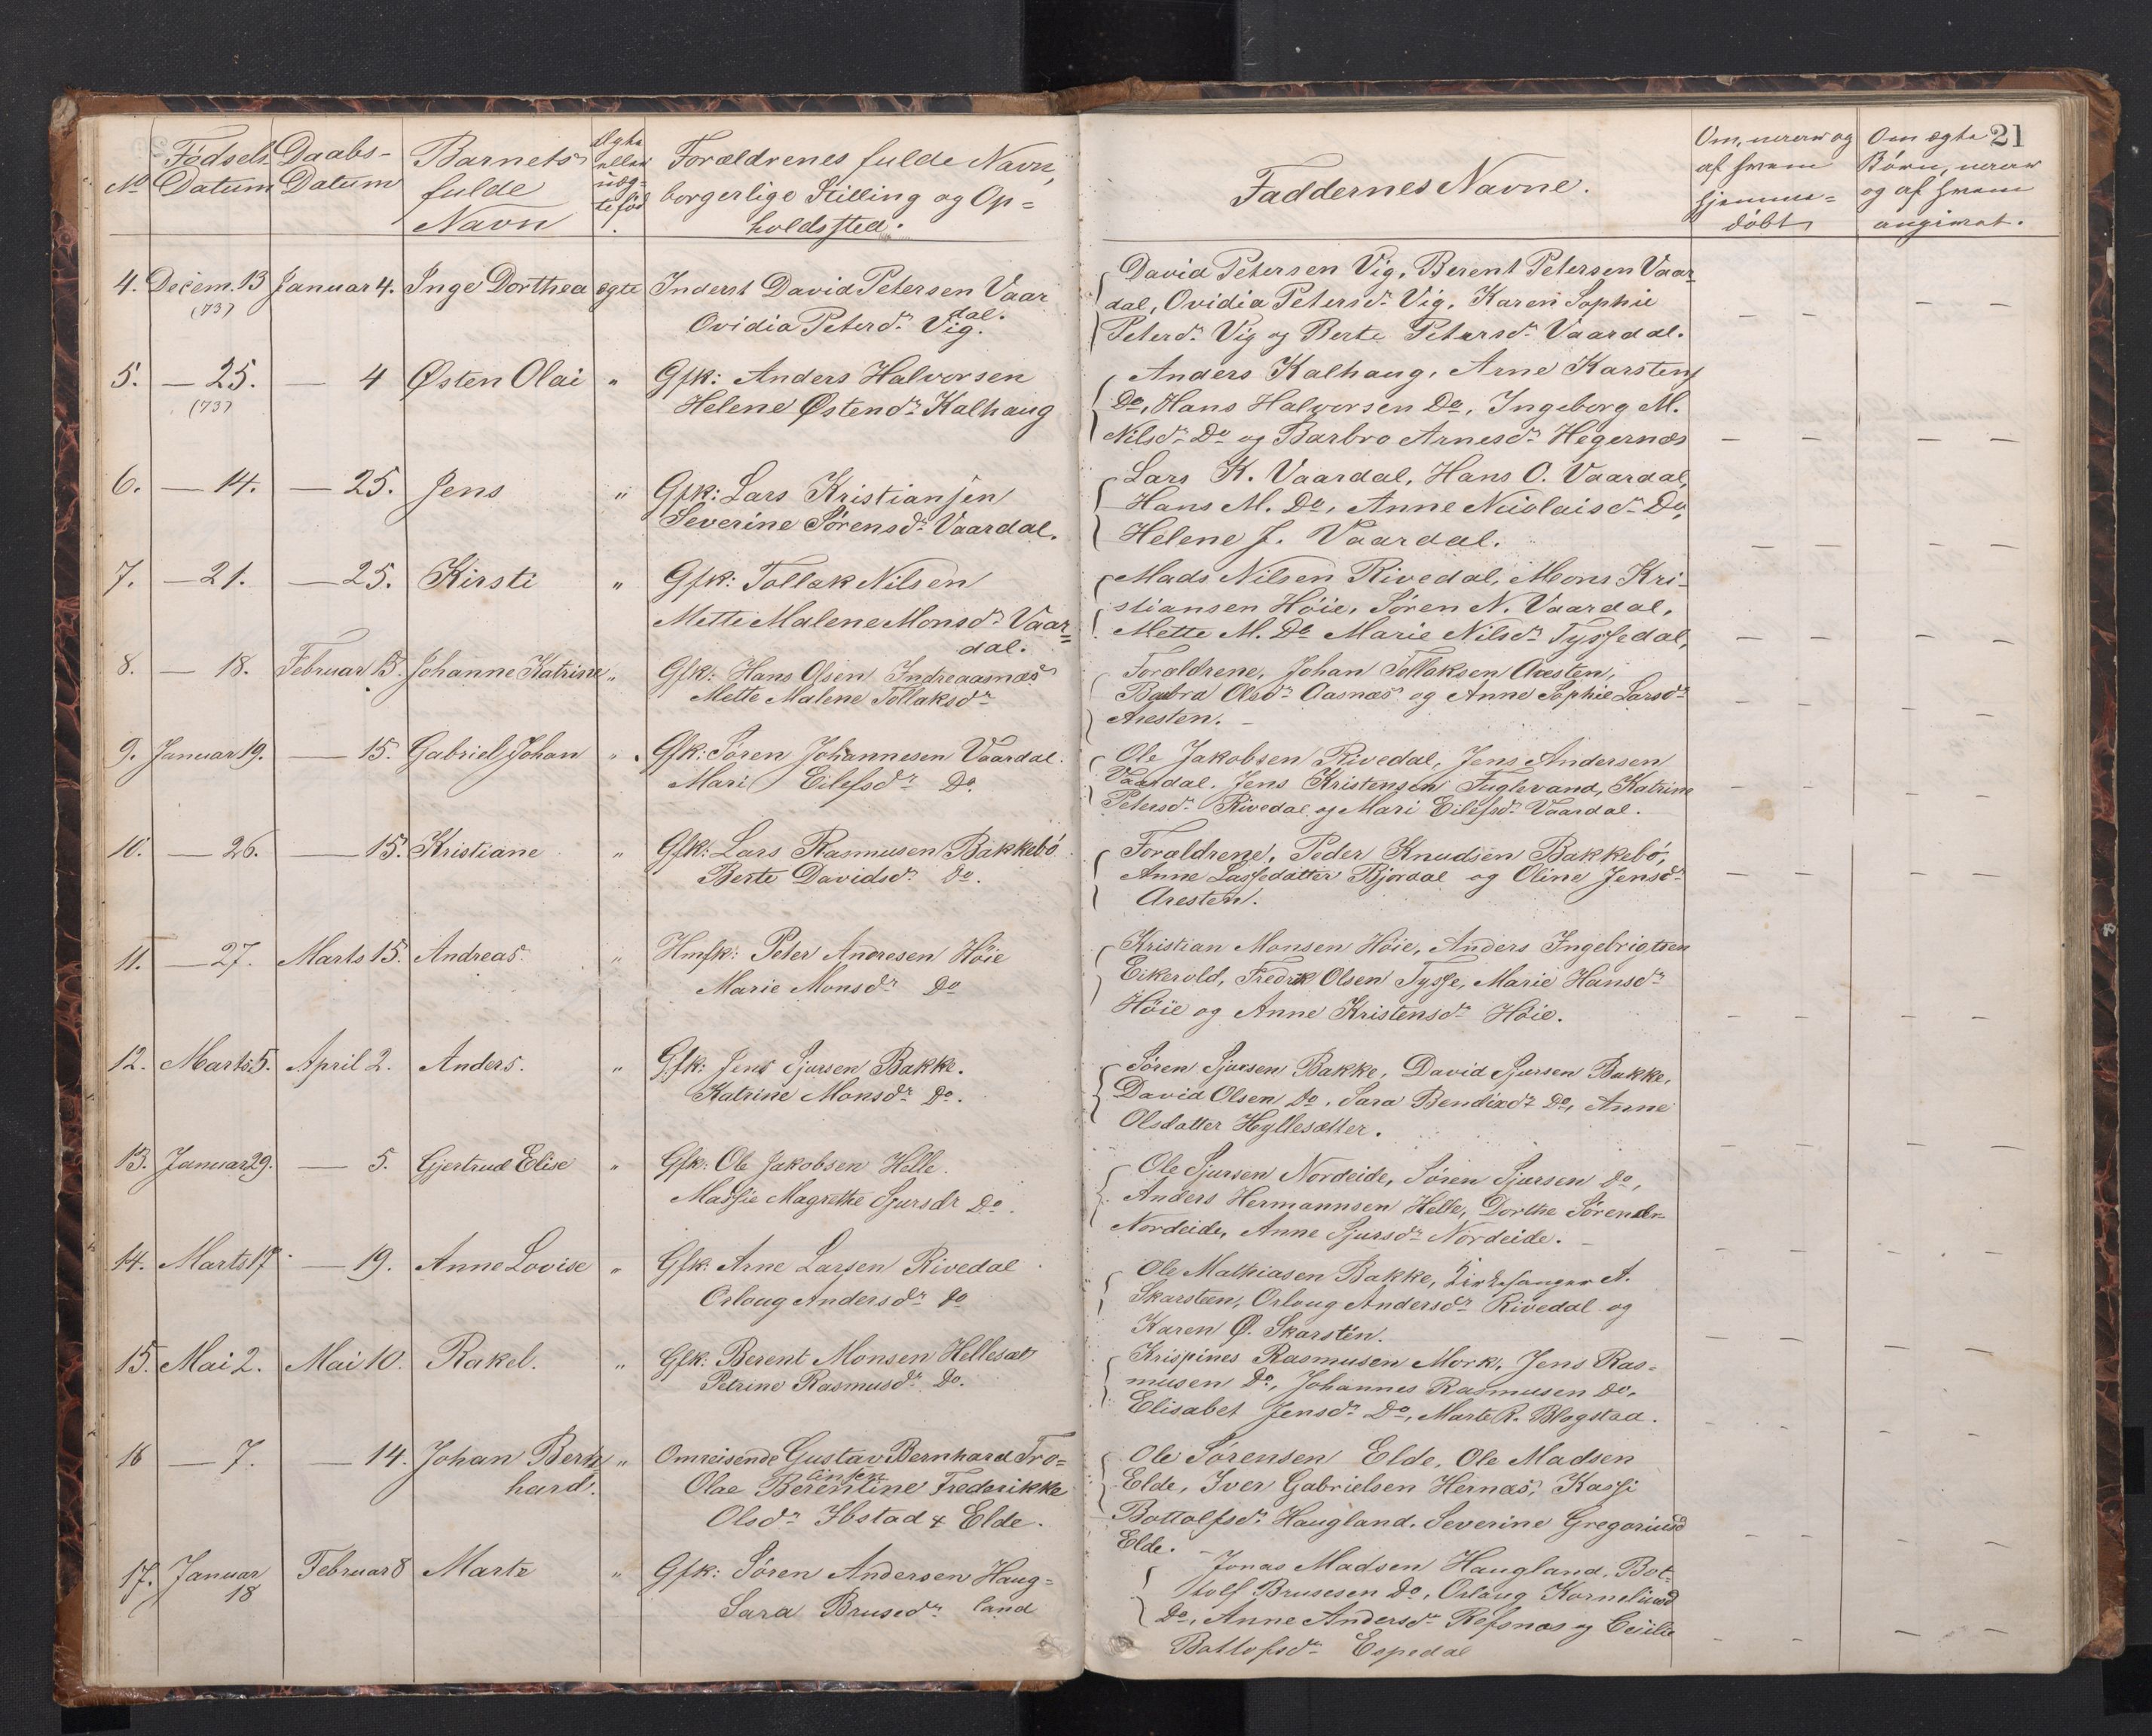 21
No Fødsels Datum Daabs-Datum Barnets fulde Navn Ægte eller uægte fød. Forældrenes fulde Navn, borgerlige Stilling og Opholdssted. Faddernes Navne. Om, naar og af hvem hjemmedøbt Om ægte Børn, naar og af hvem angivet.
4. Decem. 13 Januar 4. Inge Dorthea egte Inderst David Petersen Vaar
(73) dal.
Ovidia Peterdr. Vig.
David Petersen Vig, Berent Petersen Vaar-
dal, Ovidia Petersdr. Vig, Karen Sophie
Peterdr. Vig og Berte Petersdr. Vaardal.
5. — 25. — 4 Østen Olai " Gfk: Anders Halvorsen
(73) Helene Østendr. Kalhaug
Anders Kalhaug, Arne Karstens
Do, Hans Halvorsen Do, Ingeborg M.
Nilsdr. Do og Barbro Arnesdr. Hegernæs
6. — 14. — 25. Jens " Gfk: Lars Kristiansen
Severine Sørensdr. Vaardal.
Lars K. Vaardal, Hans O. Vaardal,
Hans M. Do, Anne Nicolaisdr. Do,
Helene J. Vaardal.
7. — 21. — 25. Kirsti " Gfk: Tollak Nilsen
Mette Malene Monsdr. Vaar=
dal.
Mads Nilsen Rivedal, Mons Kri-
stiansen Høie, Søren N. Vaardal,
Mette M. Do Marie Nilsdr. Tyssedal,
8. — 18. Februar 15. Johanne Katrine " Gfk: Hans Olsen Indreaasnæs
Mette Malene Tollaksdr
Forældrene, Johan Tollaksen Aresten,
Babra Olsdr. Aasnæs og Anne Sophie Larsdr.
Aresten. —
9. Januar 19. — 15. Gabriel Johan " Gfk: Søren Johannesen Vaardal.
Mari Eilefsdr. Do.
Ole Jakobsen Rivedal, Jens Andersen
Vaardal. Jens Kristensen Fuglevand, Katrine
Petersdr. Rivedal og Mari Eilefsdr. Vaardal.
10. — 26. — 15. Kristiane " Gfk: Lars Rasmusen Bakkebø
Berte Davidsdr. Do.
Forældrene, Peder Knudsen Bakkebø,
Anne Lassedatter Bjordal og Oline Jensdr.
Aresten.
11. — 27. Marts 15. Andreas. " Hmfk: Peter Andresen Høie
Marie Monsdr. Do
Kristian Monsen Høie, Anders Ingebrigtsen
Eikevold, Fredrik Olsen Tysse, Marie Hansdr.
Høie og Anne Kristensdr. Høie.
12. Marts 5. April 2. Anders. " Gfk: Jens Sjursen Bakke.
Katrine Monsdr. Do.
Søren Sjursen Bakke, David Sjursen Bakke,
David Olsen Do, Sara Bendixdr. Do, Anne
Olsdatter Hyllesætter.
13. Januar 29. — 5. Gjertrud Elise " Gfk: Ole Jakobsen Helle.
Massie Magrethe Sjursdr Do.
Ole Sjursen Nordeide, Søren Sjursen Do,
Anders Hermannsen Helle, Dorthe Sørendr.
Nordeide, Anne Sjursdr. Nordeide. —
14. Marts 17 — 19. Anne Lovise " Gfk: Arne Larsen Rivedal
Orloug Andersdr. Do
Ole Mathiasen Bakke, Kirkesanger A.
Skarsteen, Orloug Andersdr. Rivedal og
Karen Ø. Skarsten.
15. Mai 2. Mai 10. Rakel. " Gfk: Berent Monsen Hellesæt
Petrine Rasmusdr. Do.
Krispines Rasmusen Mork, Jens Ras-
musen Do, Johannes Rasmusen Do,
Elisabet Jensdr. Do, Marte R. Blogstad.
16 — 7. — 14. Johan Bern " Omreisende Gustav Bernhard Fro=
hard. linsen
Olae Berentine Frederikke
Olsdr. Ibstad & Elde.
Ole Sørensen Elde, Ole Madsen
Elde, Iver Gabrielsen Hernæs, Kassi
Bottolfsdr. Haugland, Severine Gregoriusd
Elde. —
17. Januar 18 Februar 8 Marte " Gfk: Søren Andersen Haug=
Sara Brusedr. land
Jonas Madsen Haugland, Bot-
tolf Brusesen Do, Orlaug Korneliusd
Do, Anne Andersdr. Refsnæs og Cecilie
Bottofsdr. Espedal